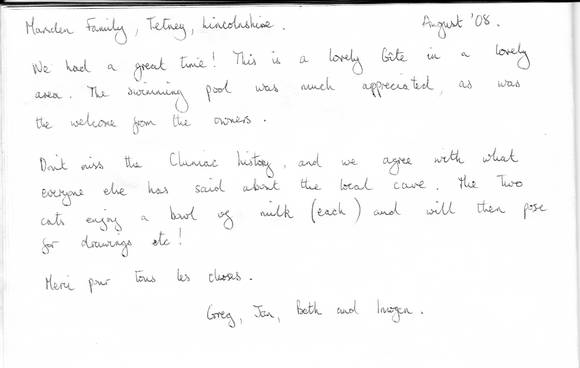 Marsden Family, Tetney, Lincolnshire. August '08.
We had a great time! This is a lovely Gîte in a lovely
area. The swimming pool was much appreciated, as was
the welcome from the owners.
Don't miss the Cluniac history, and we agree with what
everyone else has said about the local cave. The Two
cats enjoy a bowl of milk (each) and will then pose
for drawings etc!
Merci pour tous les choses.
Greg, Jan, Beth and Imogen.